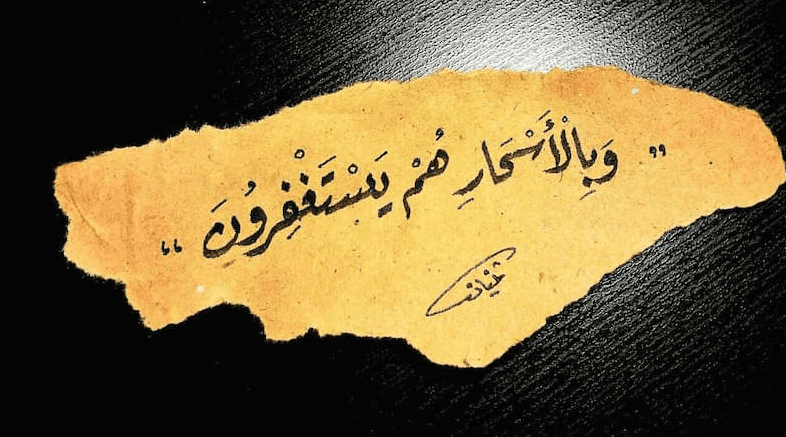 " وَبِالْأَسْحَارِ هُمْ يَسْتَغْفِرُونَ "